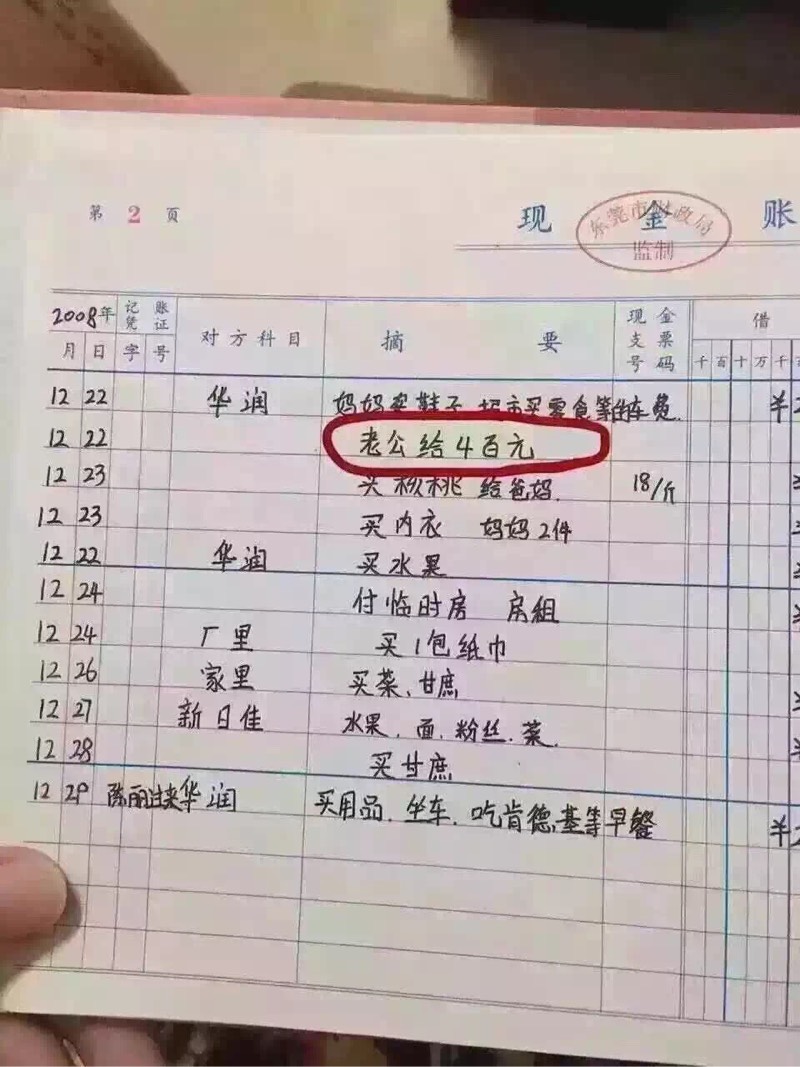 第 2 页
现 金 账
东莞市财政局
监制
2008年 记账凭证 对方科目 摘要 现金支票号码 借
月 日 字 号 千 百 十 万 千
12 22 华润 妈妈买鞋子 超市买零食等 坐车费 ¥2
12 22 老公给4百元
12 23 买核桃 给爸妈 18/斤
12 23 买内衣 妈妈2件
12 22 华润 买水果
12 24 付临时房 房组
12 24 厂里 买1包纸巾
12 26 家里 买菜、甘庶
12 27 新日佳 水果、面、粉丝、菜
12 28 买甘庶
12 29 陈丽过来华润 买用品、坐车、吃肯德基等早餐 ¥2